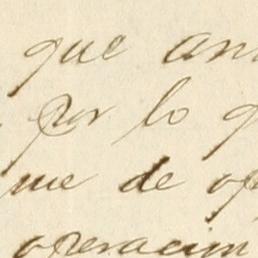 que an
por lo q
me de op
operacion